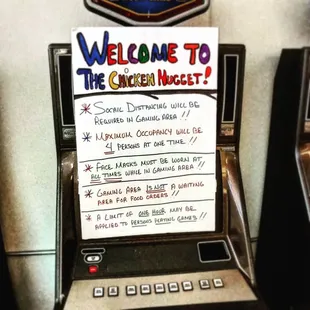 WELCOME TO
THE CHICKEN NUGGET!
* SOCIAL DISTANCING WILL BE
REQUIRED IN GAMING AREA !!
* MAXIMUM OCCUPANCY WILL BE
4 PERSONS AT ONE TIME !!
* FACE MASKS MUST BE WORN AT
ALL TIMES WHILE IN GAMING AREA !!
* GAMING AREA IS NOT A WAITING
AREA FOR FOOD ORDERS !!
* A LIMIT OF ONE HOUR MAY BE
APPLIED TO PERSONS PLAYING GAMES !!